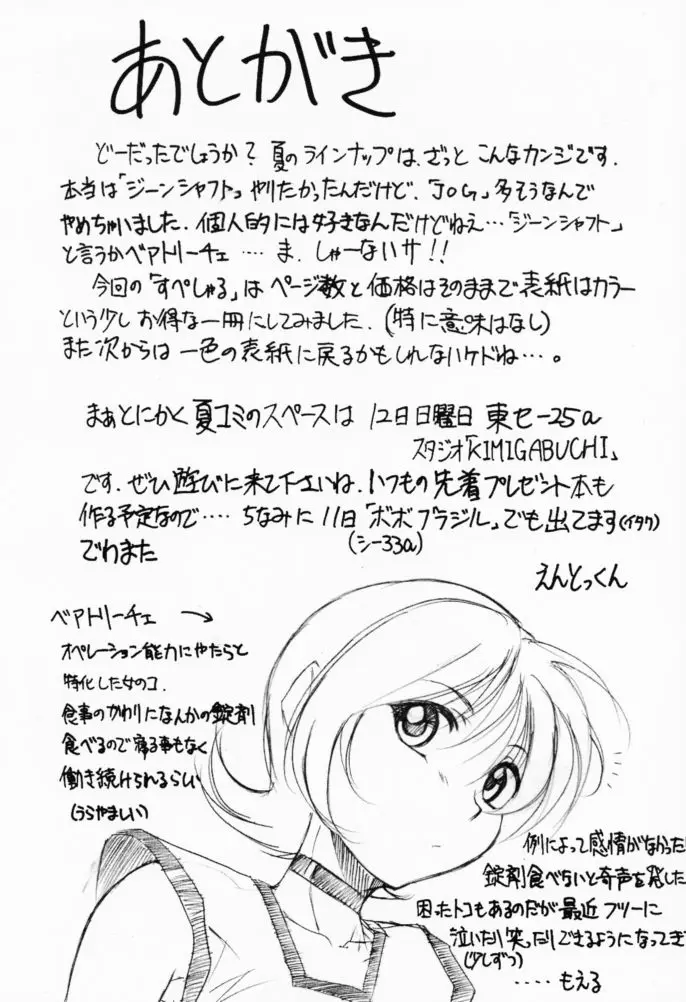 あとがき
どーだったでしょうか? 夏のラインナップは、ざっと こんなカンジです.
本当は「ジーンシャフト」やりたかったんだけど、「JOG」多そうなんで
やめちゃいました. 個人的には好きなんだけどねえ…「ジーンシャフト」
と言うかベアトリーチェ …. ま、しゃーないサ!!
今回の「すぺしゃる」は ページ数と価格はそのままで表紙はカラー
という少し お得な一冊にしてみました. (特に意味はなし)
また次からは 一色の表紙に戻るかもしれないハケドね…。
まぁとにかく 夏コミのスペースは 12日日曜日 東セー25a
スタジオ「KIMIGABUCHI」
です. ぜひ遊びに来て下さいね. いつもの先着プレゼント本も
作る予定なので…. ちなみに 11日「ボボブラジル」でも出てます(イタク)
(シー33a)
でわまた
えんとっくん
ベアトリーチェ →
オペレーション能力にやたらと
特化した女のコ.
食事のかわりになんかの錠剤
食べるので寝る事もなく
働き続けられるらしい
(うらやましい)
例によって感情がなかった
錠剤食べないと奇声を発した
困ったトコもあるのだが最近フツーに
泣いたり笑ったりできるようになってき
(少しずつ)
….もえる